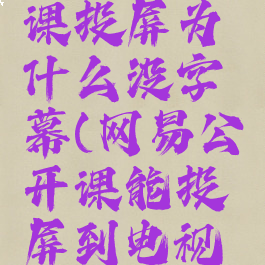 课投屏为
什么没字
幕(网易公
开课能投
屏到电视